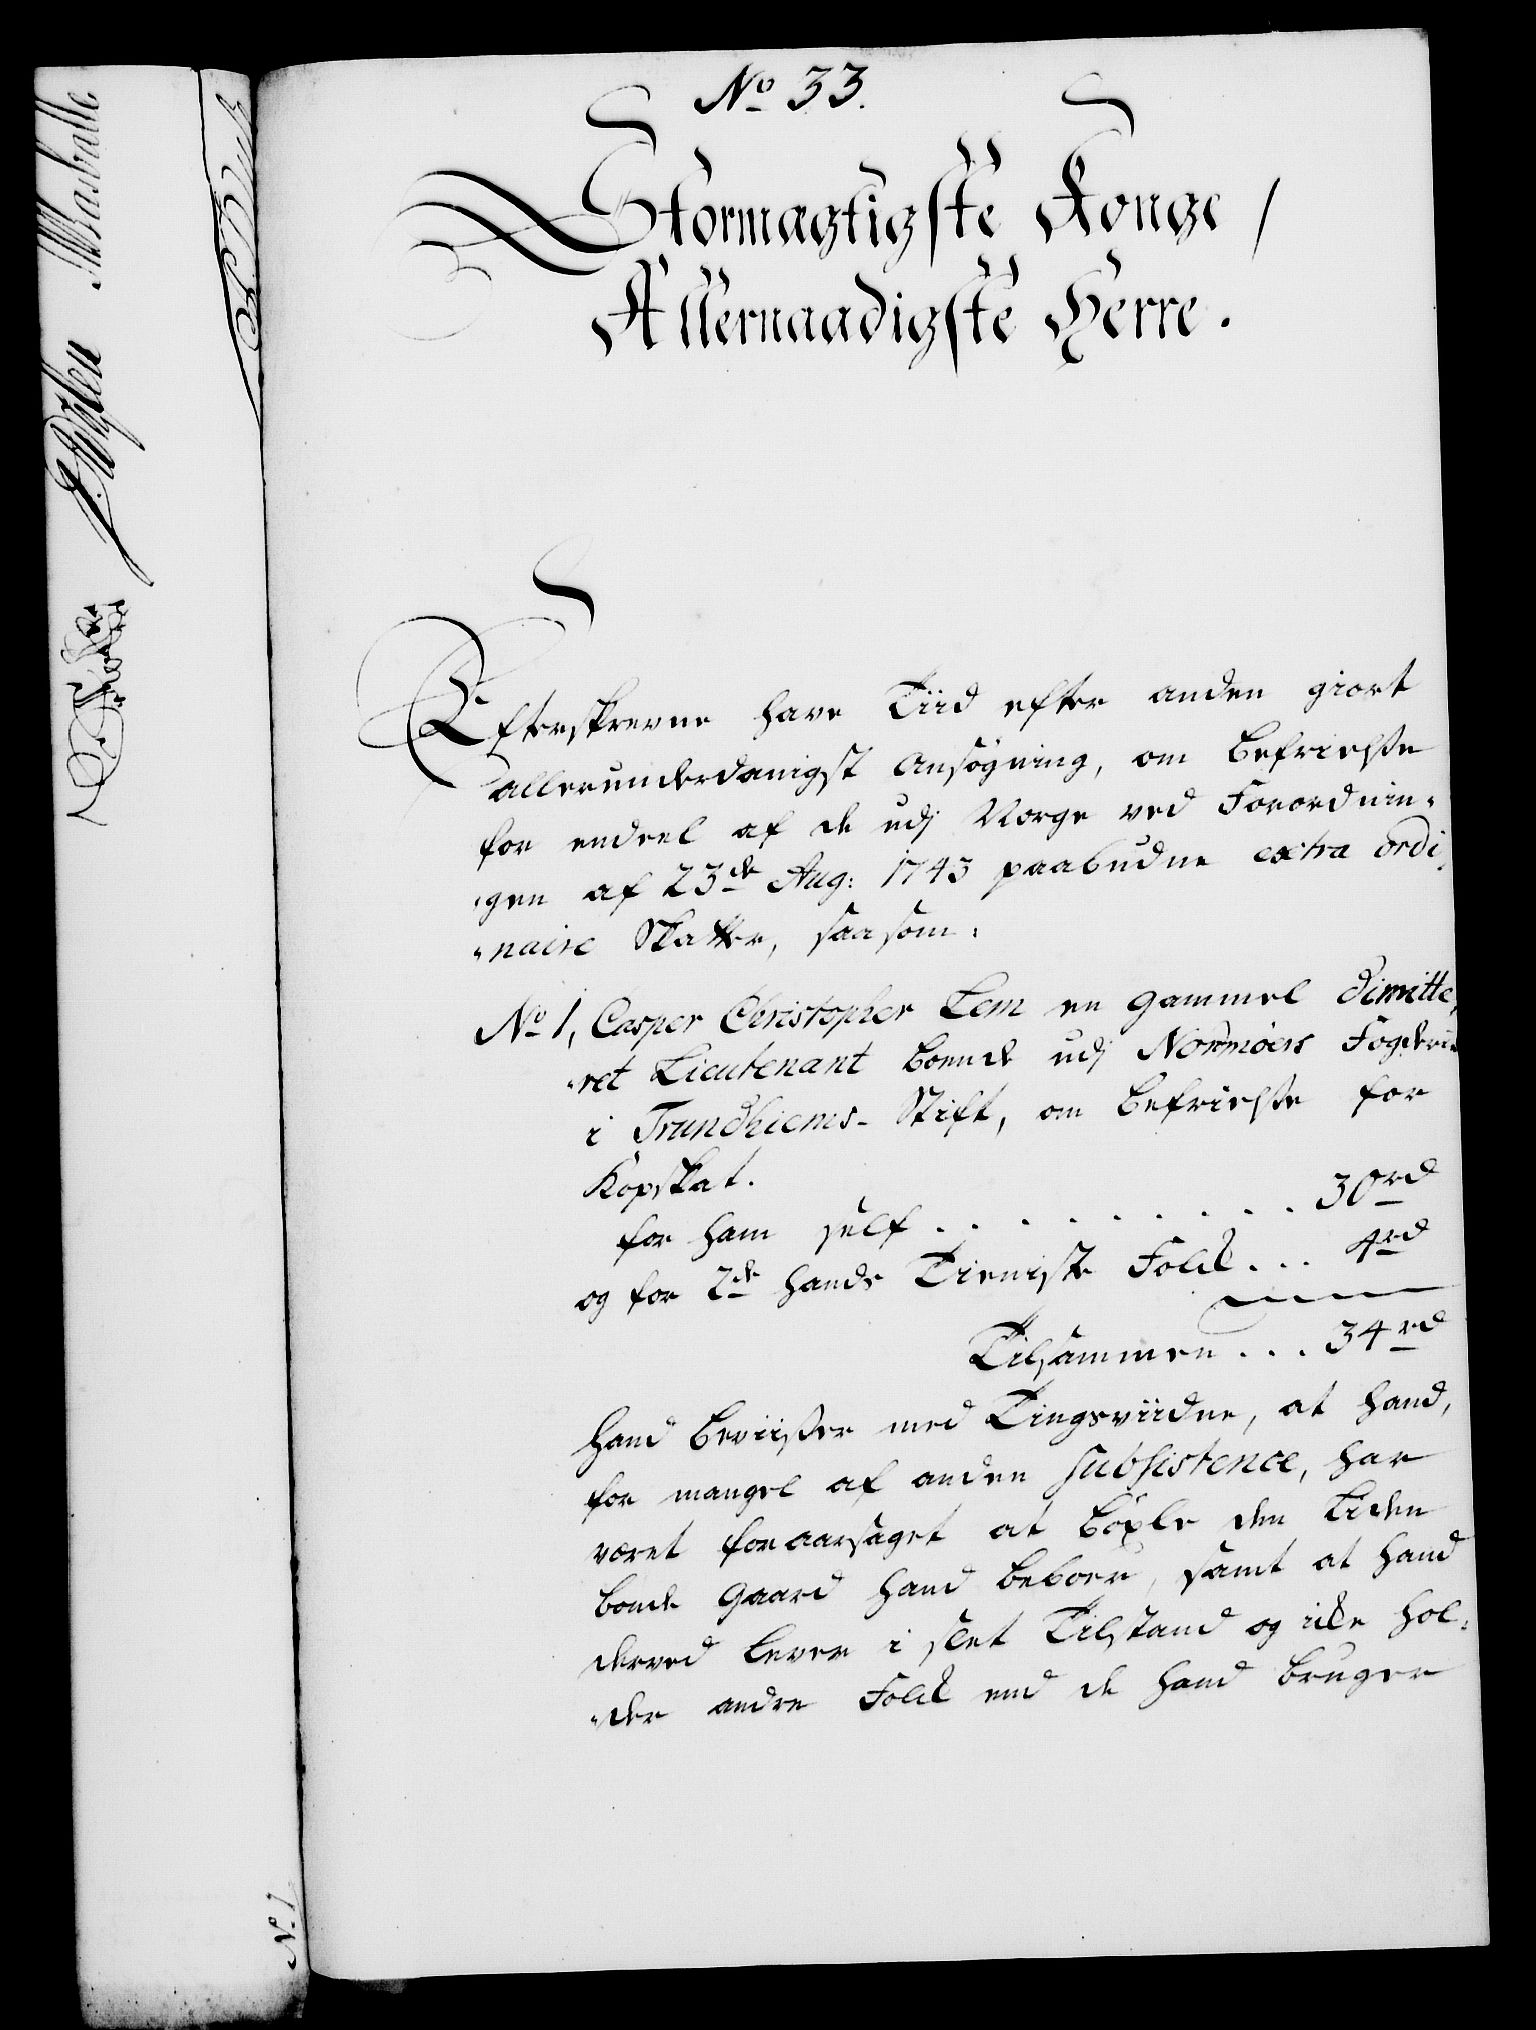 No 33.
Stormagtigste Konge /
Allernaadigste Herre.
Efterskrevne have Tiid efter anden giort
allerunderdanigst Ansøgning, om Befrielse
for endeel af de udj Norge ved Forordnin-
gen af 23de Aug: 1743 paabudne extra ordi-
naire Skatter, saasom:
No 1, Casper Christopher Lem en gammel dimitte-
ret Lieutenant boende udj Normøers Fogderie
i Trundhiems- Stift, om befrielse for
Kopskat.
for ham self . . . . . . . . . 30 rd
og for 2de hands Tieniste Folk . . . 4 rd
Tilsammen . . . 34 rd
Hand beviisser med Tingsviidne, at hand,
for mangel af anden subsistence, har
været foraarsaget at böxle den liden
bonde Gaard hand beboer, samt at hand
derved lever i slet Tilstand og ikke hol-
der andre Folk end de hand bruger
N. 1